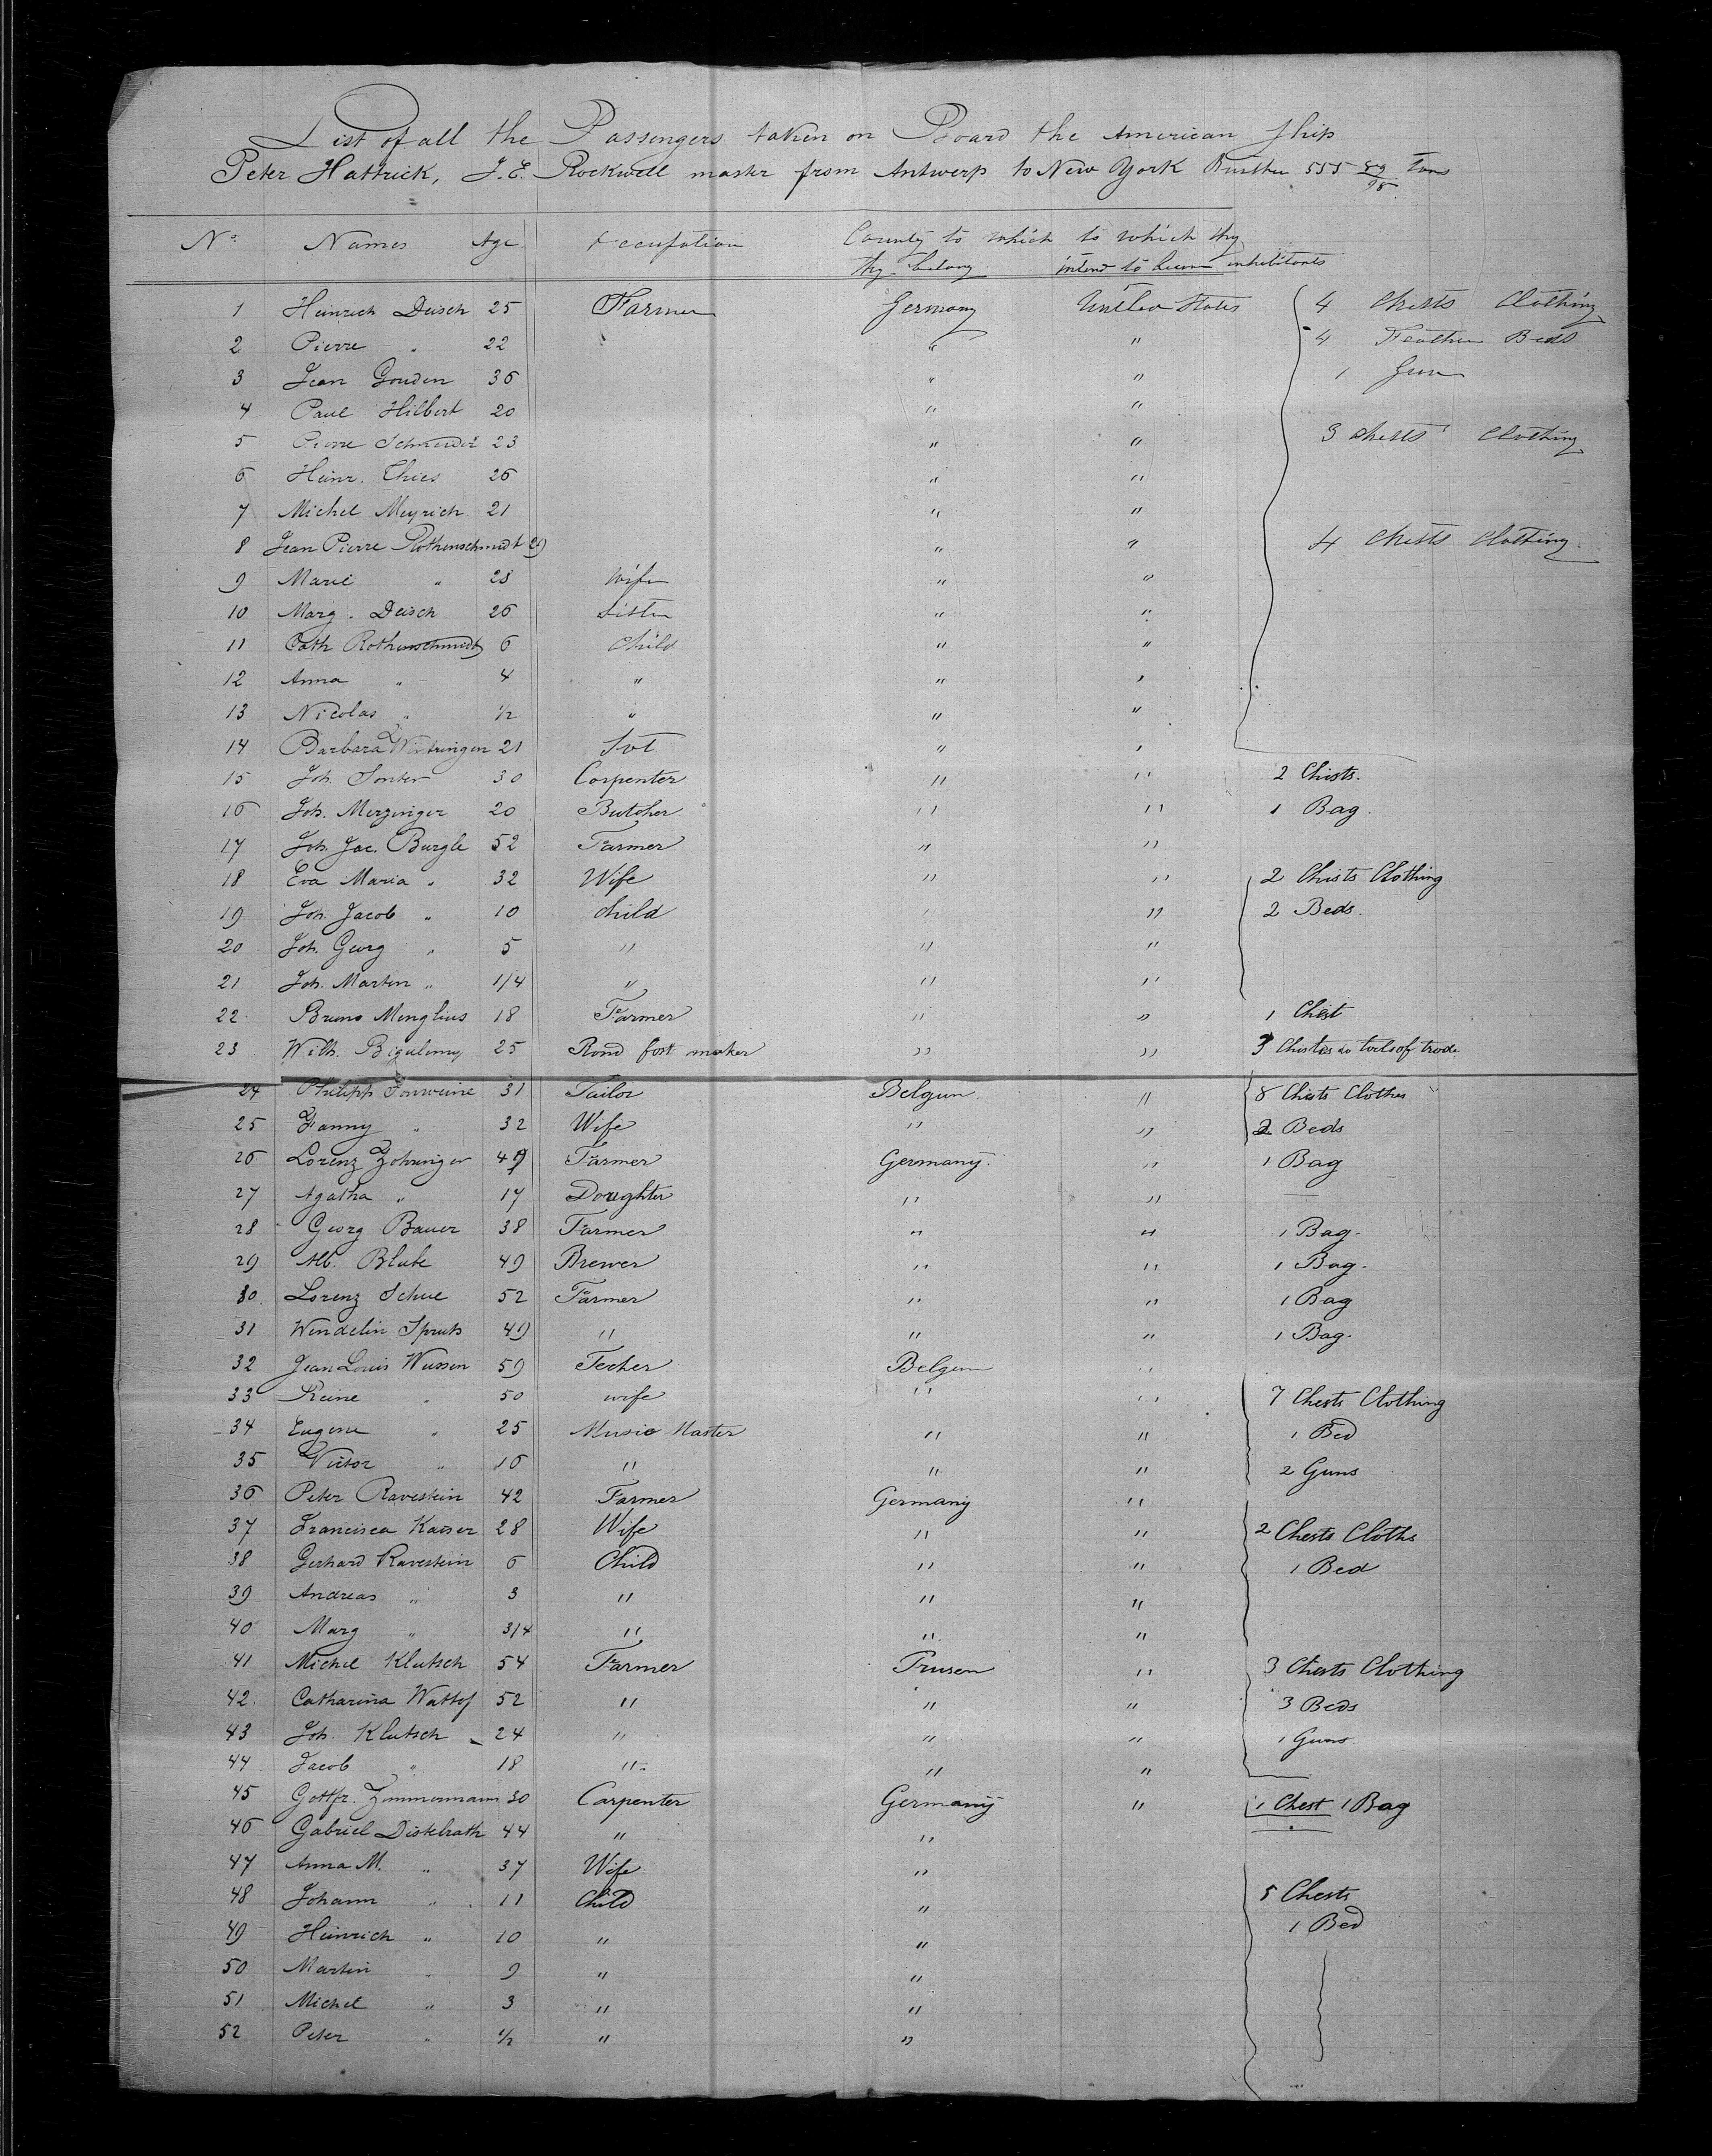 List of all the Passengers taken on Board the American Ship
Peter Hattrick, J. E. Rockwell master from Antwerp to New York Burthen 555 89/95 tons
No. Names Age Occupation County to which to which thy
thy belong intend to becom inhabitants
1 Heinrich Deisch 25 Farmer Germany United States 4 Chests Clothing
2 Pierre " 22 " " 4 Feather Beds
3 Jean Gouden 36 " " 1 Gun
4 Paul Hilbert 20 " "
5 Pierre Schneider 23 " " 3 Chests Clothing
6 Heinr. Thies 26 " "
7 Michel Meyrich 21 " "
8 Jean Pierre Rothenschmidt 29 " " 4 Chests Clothing
9 Marie " 28 Wife " "
10 Marg. Deisch 26 Sister " "
11 Cath Rothenschmidt 6 Child " "
12 Anna " 4 " " "
13 Nicolas " 1/2 " " "
14 Barbara Wirtringen 21 " "
15 Joh. Sonter 30 Carpenter " " 2 Chists.
16 Joh. Merzinger 20 Butcher " " 1 Bag.
17 Joh. Jac. Burgle 52 Farmer " "
18 Eva Maria " 32 Wife " " 2 Chists Clothing
19 Joh. Jacob " 10 child " " 2 Beds.
20 Joh. Georg " 5 " " "
21 Joh. Martin " 1/4 " " "
22 Bruno Menglius 18 Farmer " " 1 Chest
23 Wilh. 25 maker " " 3 Chistes do tools of trade
24 Philiph 31 Tailor Belgun " 8 Chists Clothes
25 Fanny " 32 Wife " " 2 Beds
26 Lorenz Zohringer 49 Farmer Germany. " 1 Bag
27 Agatha " 17 Doughter " "
28 Georg Bauer 38 Farmer " " 1 Bag.
29 Alb. Blube 49 Brewer " " 1 Bag.
30 Lorenz Schue 52 Farmer " " 1 Bag
31 Wendelin Spruts 49 " " " 1 Bag.
32 Jean Louis Wusson 59 Techer Belgun "
33 Reine " 50 wife " " 7 Chests Clothing
34 Eugene " 25 Music Master " " 1 Bed
35 Victor " 16 " " " 2 Guns
36 Peter Ravestein 42 Farmer Germany "
37 Francisca Kaiser 28 Wife " " 2 Chests Cloths
38 Gerhard Ravestein 6 Child " " 1 Bed
39 Andreas " 3 " " "
40 Marg " 3/4 " " "
41 Michel Klutsch 54 Farmer Prusen " 3 Chests Clothing
42 Catharina Wattof 52 " " " 3 Beds
43 Joh. Klutsch 24 " " " 1 Guns
44 Jacob " 18 " " "
45 Gottfr. Zimmermann 30 Carpenter Germany " 1 Chest 1 Bag
46 Gabriel Distelrath 44 " "
47 Anna M. " 37 Wife "
48 Johann " 11 Child " 5 Chests
49 Heinrich " 10 " " 1 Bed
50 Martin " 9 " "
51 Michel " 3 " "
52 Peter " 1/2 " "